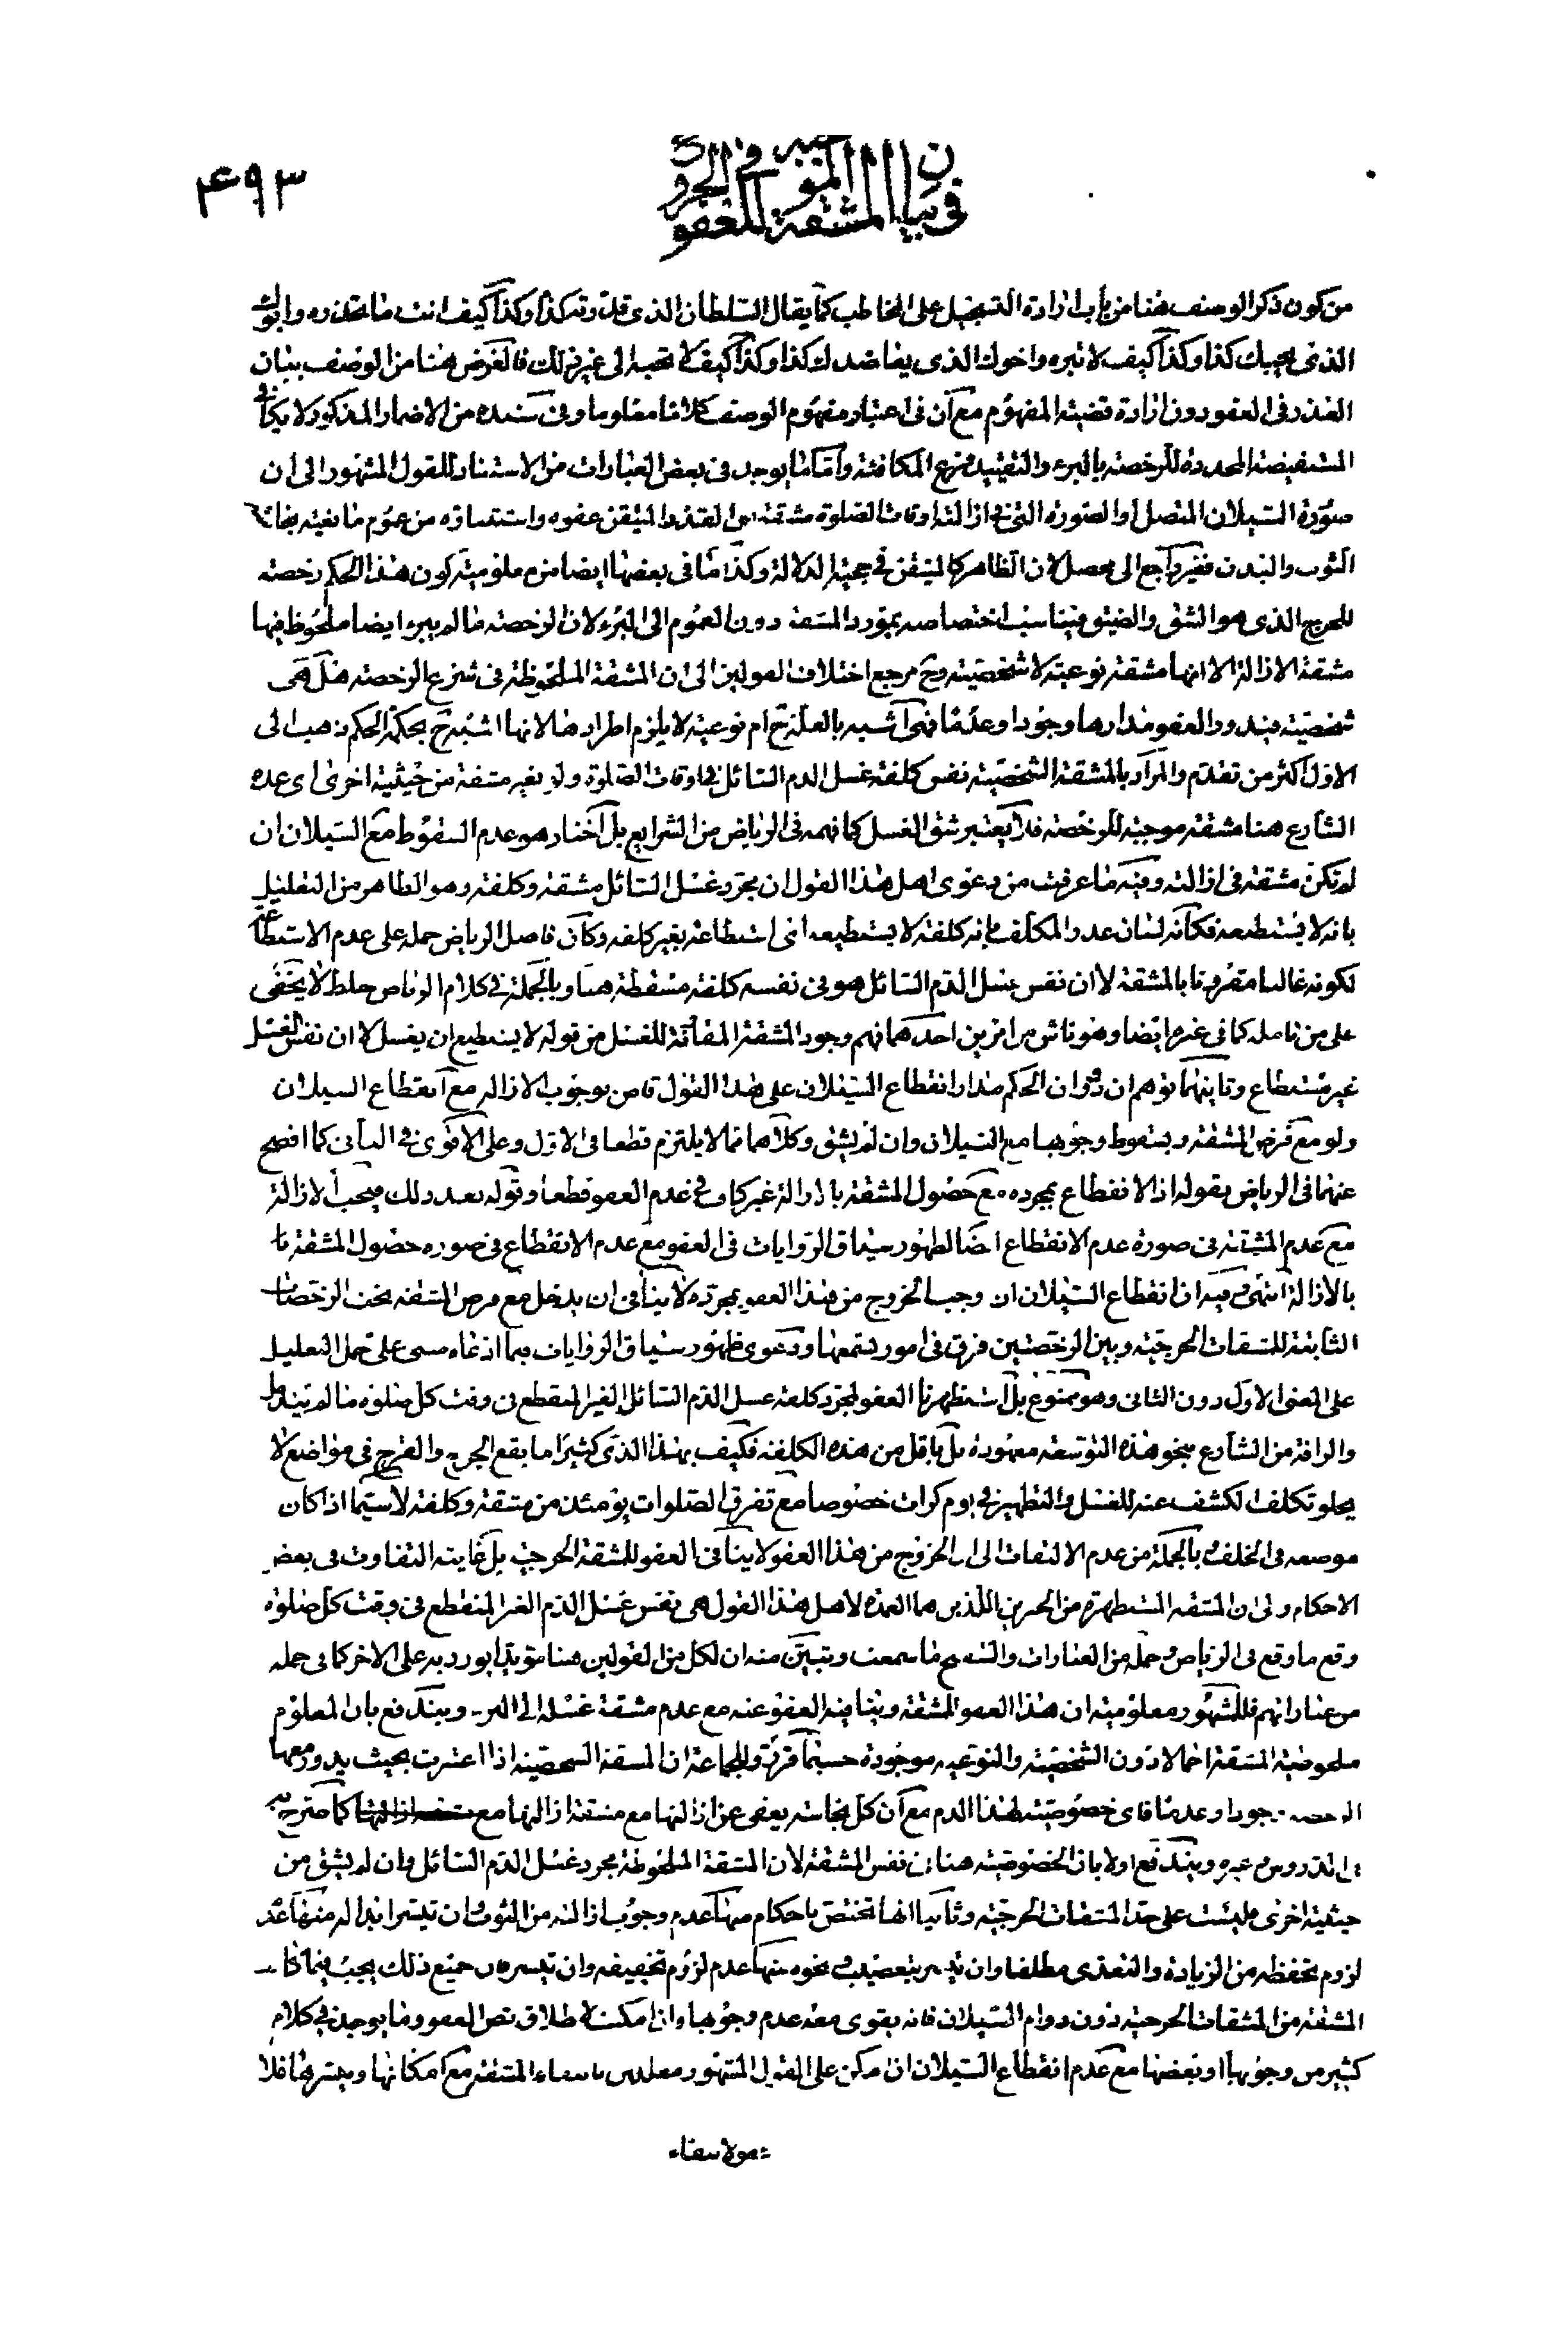 ۴۹۳
في بيان المشقة للعفو في الجروح
من كون ذكر الوصف هنا من باب ارادة التسجيل على المخاطب كما يقال السلطان الذي قلدوته كذا وكذا كيف انت ما تحذره وابوك
الذي يحبك كذا وكذا كيف لا تبره واخوك الذي يعاضدك كذا وكذا كيف لا تحبه الى غير ذلك فالغرض هنا من الوصف بيان
العذر في العفو دون ارادة قضية المفهوم مع ان في اعتبار مفهوم الوصف كلاما معلوما وفي سنده من الاضمار المذكور لا يكافؤ
المستفيضة المحددة للرخصة بالبرء والتقييد فرع المكافئة واما ما يوجد في بعض العبارات من الاستناد للقول المشهور الى ان
صورة السيلان المتصل او الصورة التي في ازالته اوقات الصلوة مشقة هي القدر المتيقن عفوه واستثنائه من عموم مانعية نجاسة
الثوب والبدن فغير راجع الى محصل لان الظاهر كالمتيقن في حجية الدلالة وكذا ما في بعضها ايضا من معلومية كون هذا الحكم رخصة
للحرج الذي هو الشق والضيق فيناسب اختصاصه بمورد المشقة دون العموم الى البرء لان الرخصة ما لم يبرء ايضا ملحوظ فيها
مشقة الازالة الا انها مشقة نوعية لا شخصية وح مرجع اختلاف القولين الى ان المشقة الملحوظة في شرع الرخصة هل هي
شخصية فيدور العفو مدارها وجودا وعدما فهي اشبه بالعلة ح ام نوعية لا يلزم اطرادها لانها اشبه ح بحكمة الحكم ذهب الى
الاول اكثر من تقدم والمراد بالمشقة الشخصية نفس كلفة غسل الدم السائل في اوقات الصلوة ولو بغير مشقة من حيثية اخرى اى عده
الشارع هنا مشقة موجبة للرخصة فلا يعتبر شق الغسل كما فهمه في الرياض من الشرايع بل اختار هو عدم السقوط مع السيلان ان
لم تكن مشقة في ازالته وفيه ما عرفت من دعوى اهل هذا القول ان مجرد غسل السائل مشقة وكلفة وهو الظاهر من التعليل
بانه لا يستطيعه فكانه لسان عذر المكلف بانه كلفة لا يستطيعه اى استطاعة بغير كلفة وكان فاضل الرياض حمله على عدم الاستطاعة
لكونه غالبا مقرونا بالمشقة لا ان نفس غسل الدم السائل هو في نفسه كلفة مسقطة هنا وبالجملة في كلام الرياض خلط لا يخفى
على من تامله كما في غيره ايضا وهو ناش من امرين احدهما فهم وجود المشقة المقارنة للغسل من قوله لا يستطيع ان يغسل لا ان نفس الغسل
غير مستطاع وثانيهما توهم ان دوران الحكم مدار انقطاع السيلان على هذا القول قاض بوجوب الازالة مع انقطاع السيلان
ولو مع فرض المشقة وبسقوط وجوبها مع السيلان وان لم يشق وكلاهما مما لا يلتزم قطعا في الاول وعلى الاقوى في الثاني كما افصح
عنهما في الرياض بقوله اذ الانقطاع بمجرده مع حصول المشقة بالازالة غير كاف في عدم العفو قطعا وقوله بعد ذلك فيجب الازالة
مع عدم المشقة في صورة عدم الانقطاع ايضا لظهور سياق الروايات في العفو مع عدم الانقطاع في صورة حصول المشقة
بالازالة انتهى وفيه ان انقطاع السيلان ان وجب الخروج من هذا العفو بمجرده لا ينافي ان يدخل مع فرض المشقة تحت الرخصة
الثابتة للمشقات الحرجية وبين الرخصتين فرق في امور تسمعها ودعوى ظهور سياق الروايات بما ادعاه مبنى على حمل التعليل
على المعنى الاول دون الثاني وهو ممنوع بل استظهرنا العفو لمجرد كلفة غسل الدم السائل الغير المنقطع في وقت كل صلوة ما لم
والرافة من الشارع بنحو هذه التوسعة معهودة بل باقل من هذه الكلفة فكيف بهذا الذي كثيرا ما يقع الجرح والقرح في مواضع لا
يخلو تكلف الكشف عنه للغسل والتطهير في يوم كرات خصوصا مع تفرق الصلوات يومئذ من مشقة وكلفة لا سيما اذا كان
موضعه في الخلف وبالجملة من عدم الالتفات الى ان الخروج من هذا العفو لا ينافي العفو للمشقة الحرجية بل غايته التفاوت في بعض
الاحكام والى ان المشقة المستظهرة من الخبرين اللذين هما العمدة لاهل هذا القول هي نفس غسل الدم الغير المنقطع في وقت كل صلوة
وقع ما وقع في الرياض وجملة من العبارات والصحيح ما سمعت وتبين منه ان لكل من القولين هنا مؤيدا يورد به على الاخر كما في جملة
من عباراتهم فللمشهور معلومية ان هذا العفو للمشقة وينافيه العفو عنه مع عدم مشقة غسله الى البرء ويندفع بان المعلوم
ملحوظية المشقة اجمالا دون الشخصية والنوعية موجودة حسبما قررنا وللجماعة ان المشقة الشخصية اذا اعتبرت بحيث يدور معها
الرخصة وجودا وعدما فاى خصوصية لهذا الدم مع ان كل نجاسة يعفى عن ازالتها مع مشقة ازالتها كما صرح به
وغيره ويندفع اولا بان الخصوصية هنا في نفس المشقة لان المشقة الملحوظة مجرد غسل الدم السائل وان لم يشق من
حيثية اخرى فليست على حد المشقات الحرجية وثانيا انها تختص باحكام منها عدم وجوب ازالته من الثوب وان تيسر ابداله منها عدم
لزوم تحفظه من الزيادة والتعدي مطلقا وان تيسر بتعصيب ونحوه منها عدم لزوم تخفيفه وان تيسر فان جميع ذلك يجب فيما كانت
المشقة من المشقات الحرجية دون دوام السيلان فانه يقوى معه عدم وجوبها وان امكنت لاطلاق نص العفو وما يوجد في كلام
كثير من وجوبها او بعضها مع عدم انقطاع السيلان ان امكن على القول المشهور معللين بانتفاء المشقة مع امكانها وتيسرها فلا